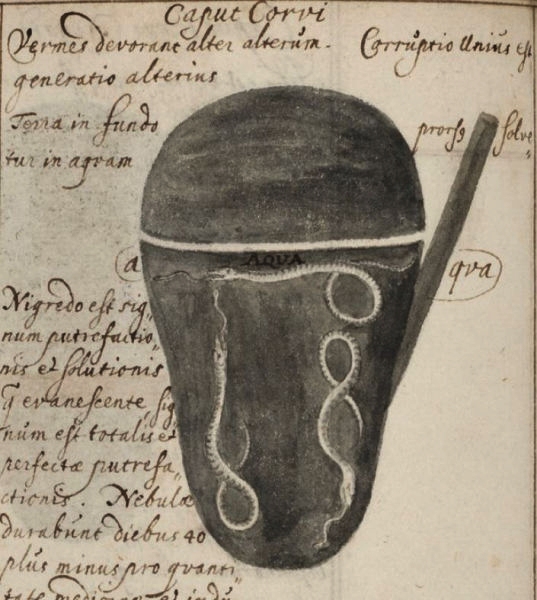 Caput Corvi
Vermes devorant alter alterum.
Corruptio Unius est
generatio alterius
Terra in fundo
prorsꝯ solve„
tur in aqvam
AQVA
a
qva
Nigredo est sig„
num putrefactio„
nis et solutionis
q̄ evanescente, sig„
num est totalis et
perfectæ putrefa„
ctionis. Nebulæ
durabunt diebus 40
plus minus pro qvanti„
tate medicinæ et